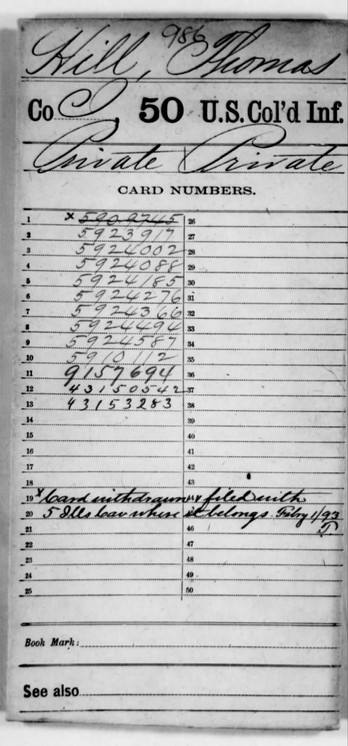 986
Hill, Thomas
Co. C, 50 U.S. Col'd Inf.
Private Private
CARD NUMBERS.
1 x 5909745 26
2 5923917 27
3 5924002 28
4 5924088 29
5 5924185 30
6 5924276 31
7 5924366 32
8 5924494 33
9 5924587 34
10 5910112 35
11 9157694 36
12 43150542 37
13 43153283 38
14 39
15 40
16 41
17 42
18 43
19 x Card withdrawn & filed with 44
20 5 Ills Cav where it belongs. Feby 1/93 45
21 46
22 47
23 48
24 49
25 50
Book Mark:
See also